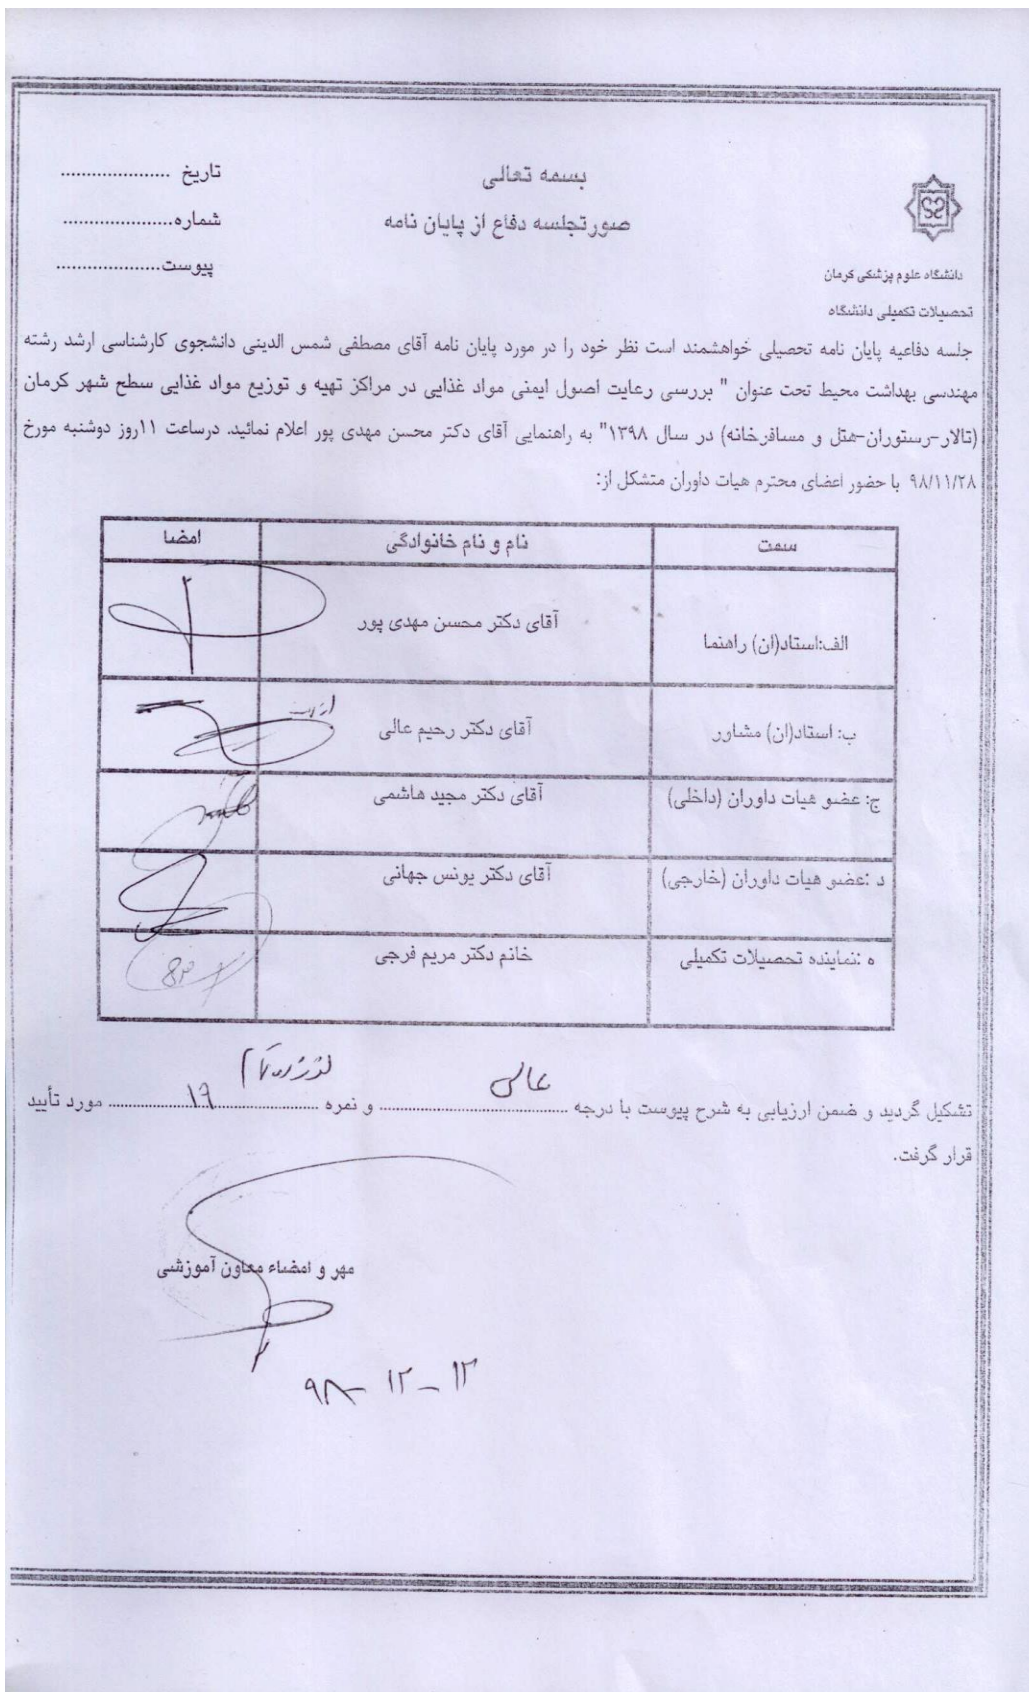 بسمه تعالی
صورتجلسه دفاع از پایان نامه
تاریخ .....................
شماره.....................
پیوست....................
دانشگاه علوم پزشکی کرمان
تحصیلات تکمیلی دانشگاه
جلسه دفاعیه پایان نامه تحصیلی خواهشمند است نظر خود را در مورد پایان نامه آقای مصطفی شمس الدینی دانشجوی کارشناسی ارشد رشته
مهندسی بهداشت محیط تحت عنوان " بررسی رعایت اصول ایمنی مواد غذایی در مراکز تهیه و توزیع مواد غذایی سطح شهر کرمان
(تالار-رستوران-هتل و مسافرخانه) در سال ۱۳۹۸" به راهنمایی آقای دکتر محسن مهدی پور اعلام نمائید. درساعت ۱۱روز دوشنبه مورخ
۹۸/۱۱/۲۸ با حضور اعضای محترم هیات داوران متشکل از:
سمت نام و نام خانوادگی امضا
الف:استاد(ان) راهنما آقای دکتر محسن مهدی پور
ب: استاد(ان) مشاور آقای دکتر رحیم عالی
ج: عضو هیات داوران (داخلی) آقای دکتر مجید هاشمی
د :عضو هیات داوران (خارجی) آقای دکتر یونس جهانی
ه :نماینده تحصیلات تکمیلی خانم دکتر مریم فرجی
تشکیل گردید و ضمن ارزیابی به شرح پیوست با درجه عالی و نمره ۱۹ مورد تأیید
قرار گرفت.
مهر و امضاء معاون آموزشی
۹۸-۱۲-۱۲